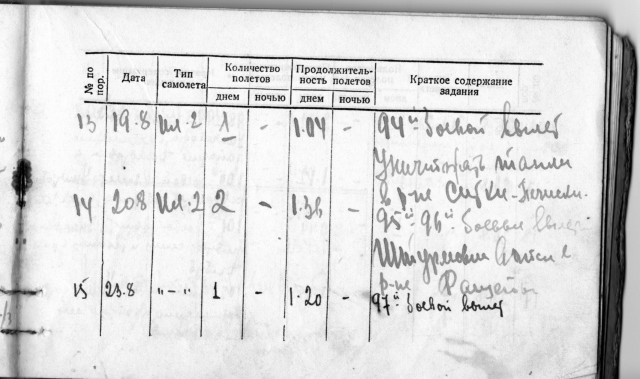 № по пор. Дата Тип самолета Количество полетов Продолжительность полетов Краткое содержание задания
днем ночью днем ночью
13 19.8 Ил-2 1 - 1.04 - 94й боевой вылет
Уничтожать танки
в р-не
14 20.8 Ил-2 2 - 1.36 - 95й-96й боевые вылет
Штурмовка
р-не
15 23.8 "-" 1 - 1.20 - 97й боевой вылет